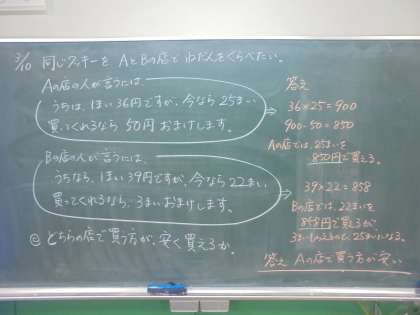 3/10 同じクッキーを、AとBの店でねだんをくらべたい。
Aの店の人が言うには、
うちは、1まい36円ですが、今なら25まい
買ってくれるなら 50円おまけします。
Bの店の人が言うには、
うちなら、1まい39円ですが、今なら22まい
買ってくれるなら、3まいおまけします。
◎ どちらの店で買う方が、安く買えるか。
答え
36×25=900
900-50=850
Aの店では、25まいを
850円で買える。
39×22=858
Bの店では、22まいを
858円で買えるが、
3まいもらえるので、25まいになる。
答え Aの店で買う方が安い